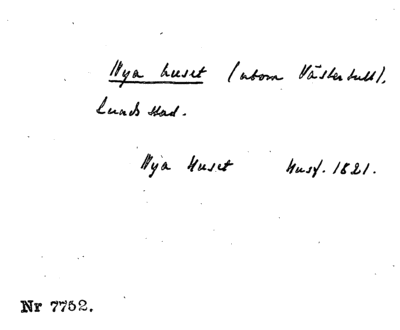 Nya huset (utom Västertull),
Lunds stad.
Nya Huset Husf. 1821.
Nr 7752.